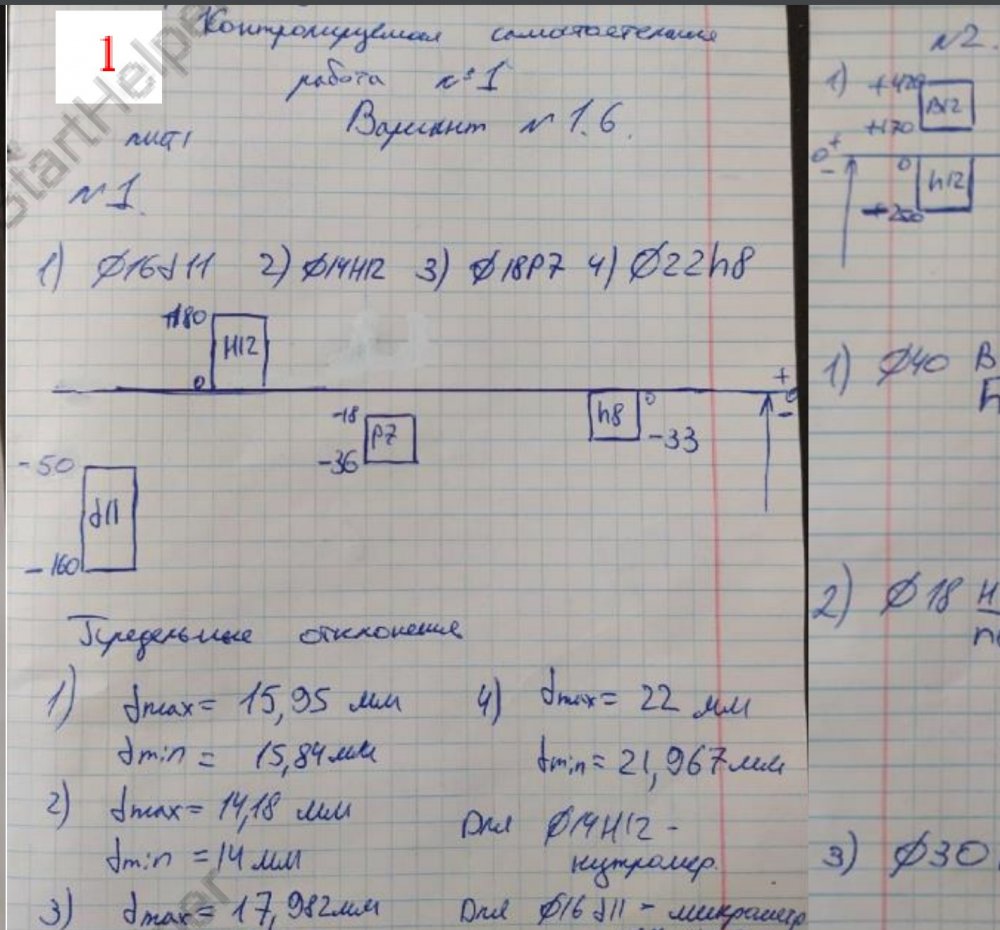 1
Контролируемая самостоятельная
работа №1
Вариант №1.6.
лист 1
№1.
1) Ø16d11 2) Ø14H12 3) Ø18P7 4) Ø22h8
+180
H12
0
+
0
-
-18
P7
-36
h8
0
-33
-50
d11
-160
Предельные отклонения
1) dmax = 15,95 мм
dmin = 15,84 мм
2) dmax = 14,18 мм
dmin = 14 мм
3) dmax = 17,982 мм
4) dmax = 22 мм
dmin = 21,967 мм
Для Ø14H12 -
нутромер.
Для Ø16d11 - микрометр
№2.
1) +420
B12
+170
0
+
-
0
h12
1) Ø40 B
h
2) Ø18 H
n
3) Ø30
StartHelper